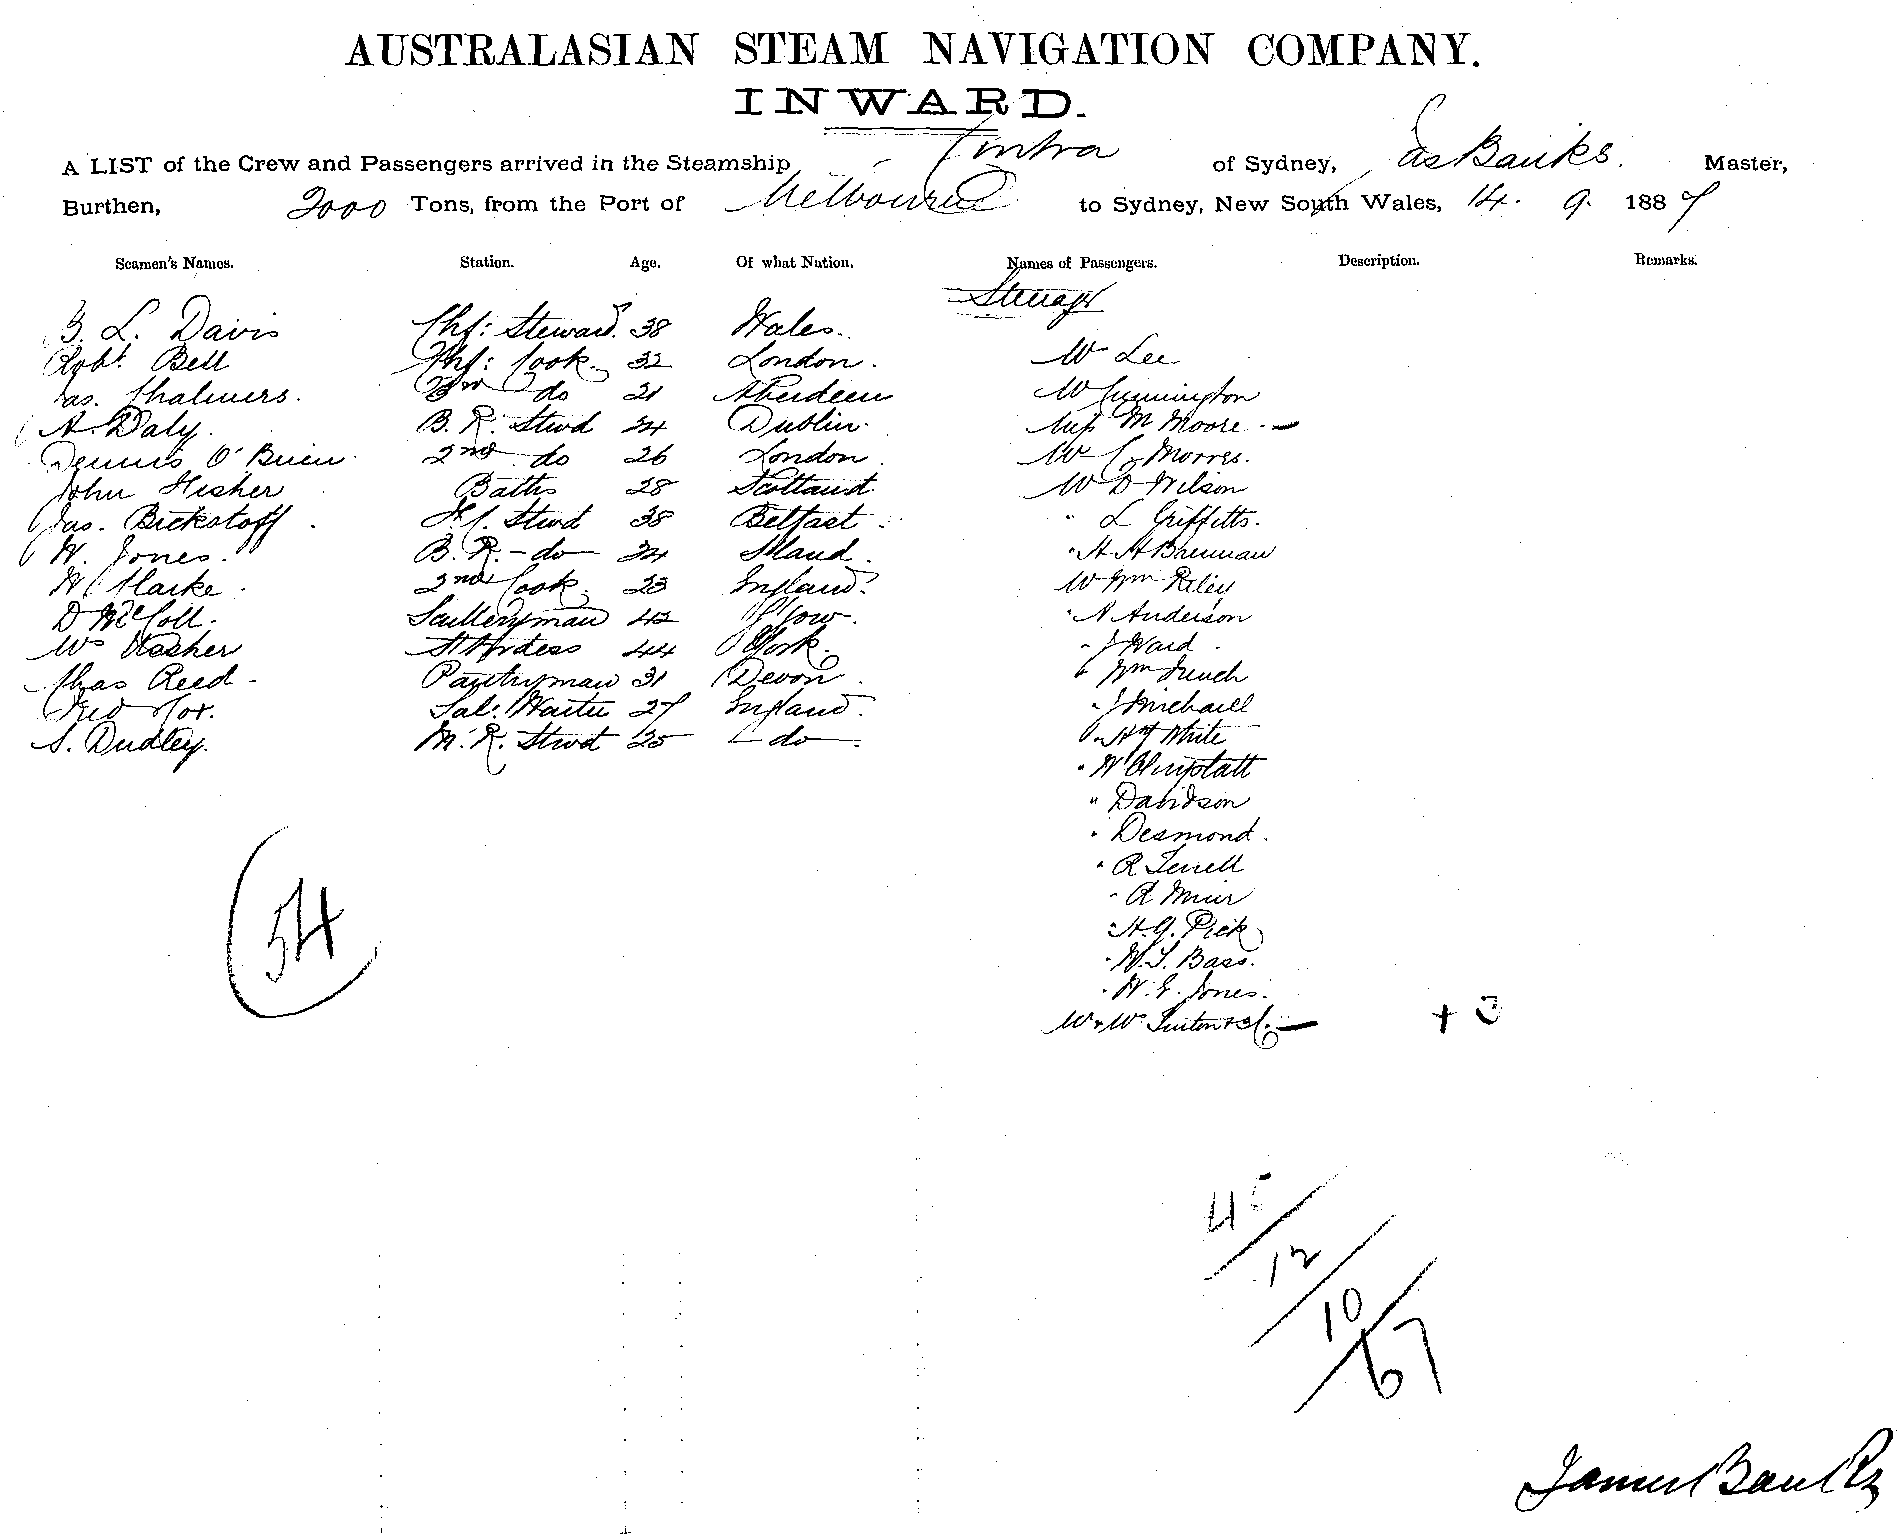 AUSTRALASIAN STEAM NAVIGATION COMPANY.
INWARD.
A LIST of the Crew and Passengers arrived in the Steamship Cintra of Sydney, Jas Banks. Master,
Burthen, 2000 Tons, from the Port of Melbourne to Sydney, New South Wales, 14. 9. 1887
Seamen's Names. Station. Age. Of what Nation. Names of Passengers. Description. Remarks.
Steerage
L. Davis Chf: Steward. 38 Wales.
Robt. Bell Chf: Cook. 32 London. Mr Lee
Jas. Chalmers. do 21 Aberdeen Mr Cunnington
A. Daly. B. R. Stwd 24 Dublin. Miss M Moore -
Dennis O'Brien 2nd do 26 London. Mr Morres.
John Fisher Baths 28 Scotland. Mr D Wilson
Jas. Bickstoff. Stwd 38 Belfast. " L Griffitts.
W. Jones. B. R. - do 24 Island. " H H Brennan
W Clarke. 2nd Cook. 23 England. Mr Wm Riley
D McColl. Scullery man 42 Gow. " A Anderson
Mrs Stewardess 44 York. " J Ward.
Chas Reed - Pantryman 31 Devon. " Wm French
Fred Cox. Sal: Waiter 27 England. " J Michaell
S. Dudley. M. R. Stwd 25 - do -. " White
" W
" Davidson
" Desmond.
" R Terrell
" R Muir
" H. G. Pick
" W. S. Bass.
" W. E. Jones.
Mr & Mrs -
+ 3
(54
45/12/10/67
James Banks